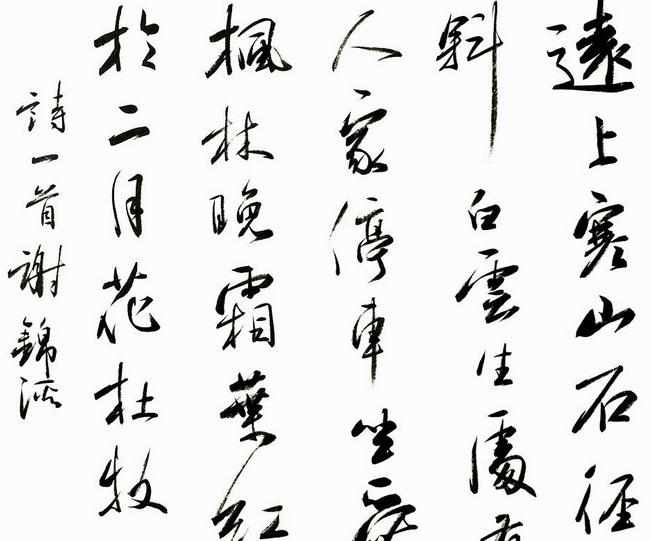 遠上寒山石徑
斜白雲生處有
人家停車坐愛
楓林晚霜葉紅
於二月花杜牧
詩一首謝錦